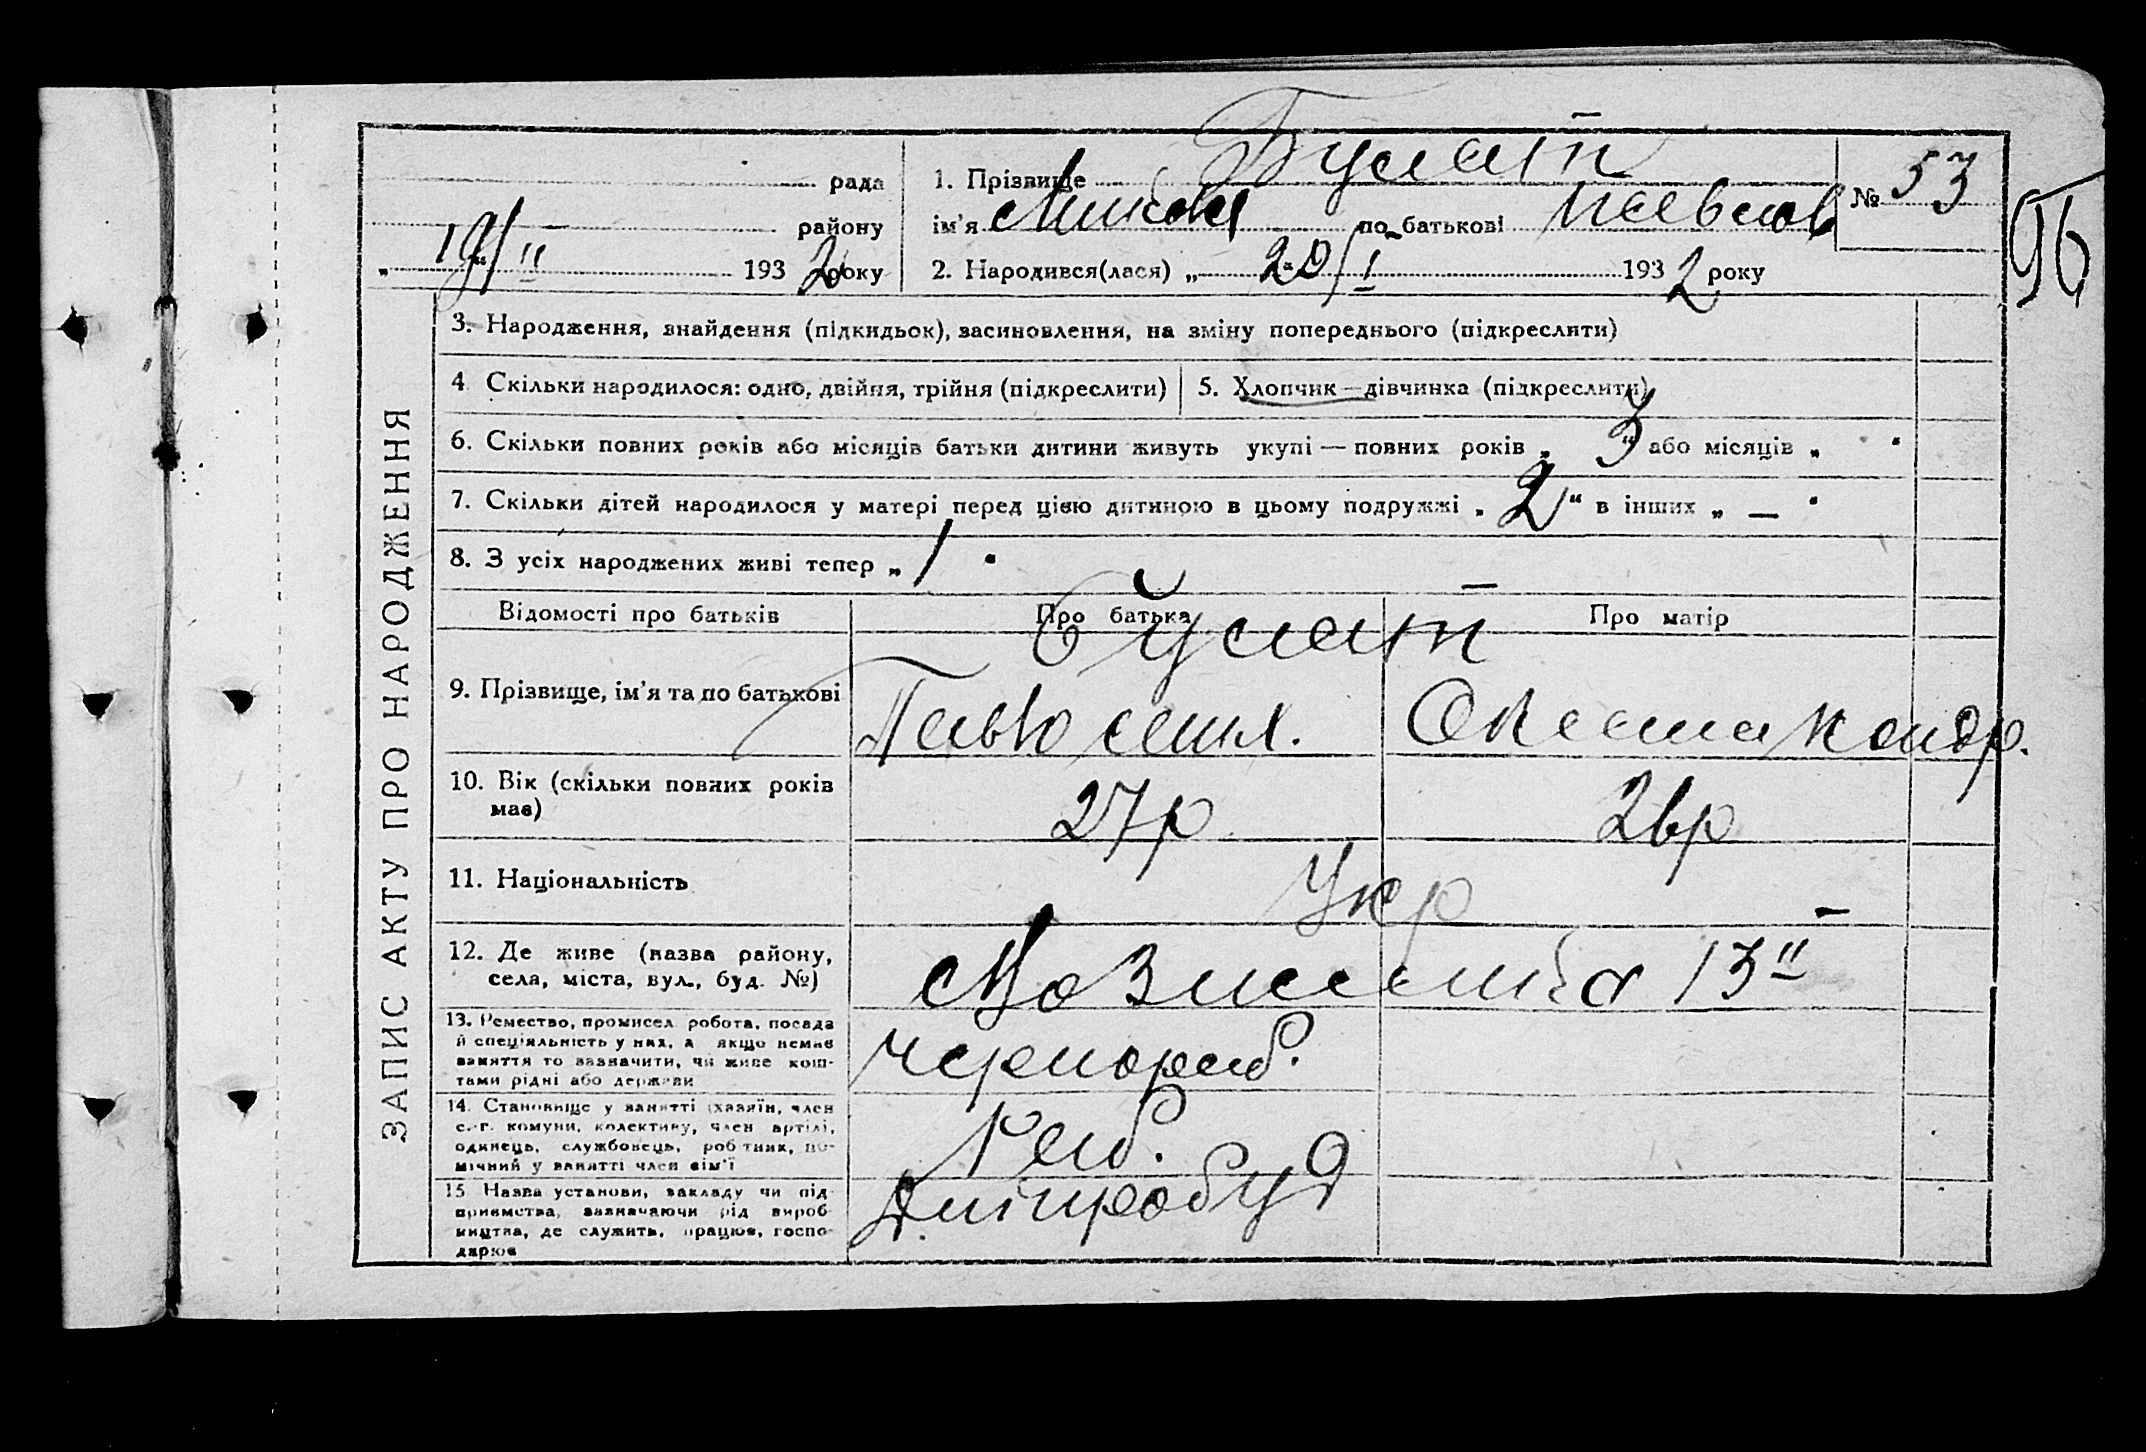 рада
1. Прізвище Булат
№ 53
96
району
ім'я Микола по батькові Павлов
„ 19/II 193 2 року
2. Народився(лася) „ 20/I 193 2 року
ЗАПИС АКТУ ПРО НАРОДЖЕННЯ
3. Народження, знайдення (підкидьок), засиновлення, на зміну попереднього (підкреслити)
4. Скільки народилося: одно, двійня, трійня (підкреслити)
5. Хлопчик—дівчинка (підкреслити)
6. Скільки повних років або місяців батьки дитини живуть укупі — повних років „ 3 “ або місяців „ “
7. Скільки дітей народилося у матері перед цією дитиною в цьому подружжі „ 2 “ в інших „ — “
8. З усіх народжених живі тепер „ 1 “
Відомості про батьків
Про батька
Про матір
Булат
9. Прізвище, ім'я та по батькові
Павло
Кондр.
10. Вік (скільки повних років має)
27р
26р
11. Національність
Укр
12. Де живе (назва району, села, міста, вул., буд. №)
13
13. Ремество, промисел, робота, посада
й спеціяльність у них, а якщо немає
заняття то зазначити, чи живе кош-
тами рідні або держави
чернораб.
14. Становище у занятті (хазяїн, член
с.-г. комуни, колективу, член артілі,
одинець, службовець, робітник, по-
мічний у занятті член сім'ї
Раб.
15 Назва установи, закладу чи під-
приємства, зазначаючи рід вироб-
ництва, де служить, працює, госпо-
дарює
Дніпробуд